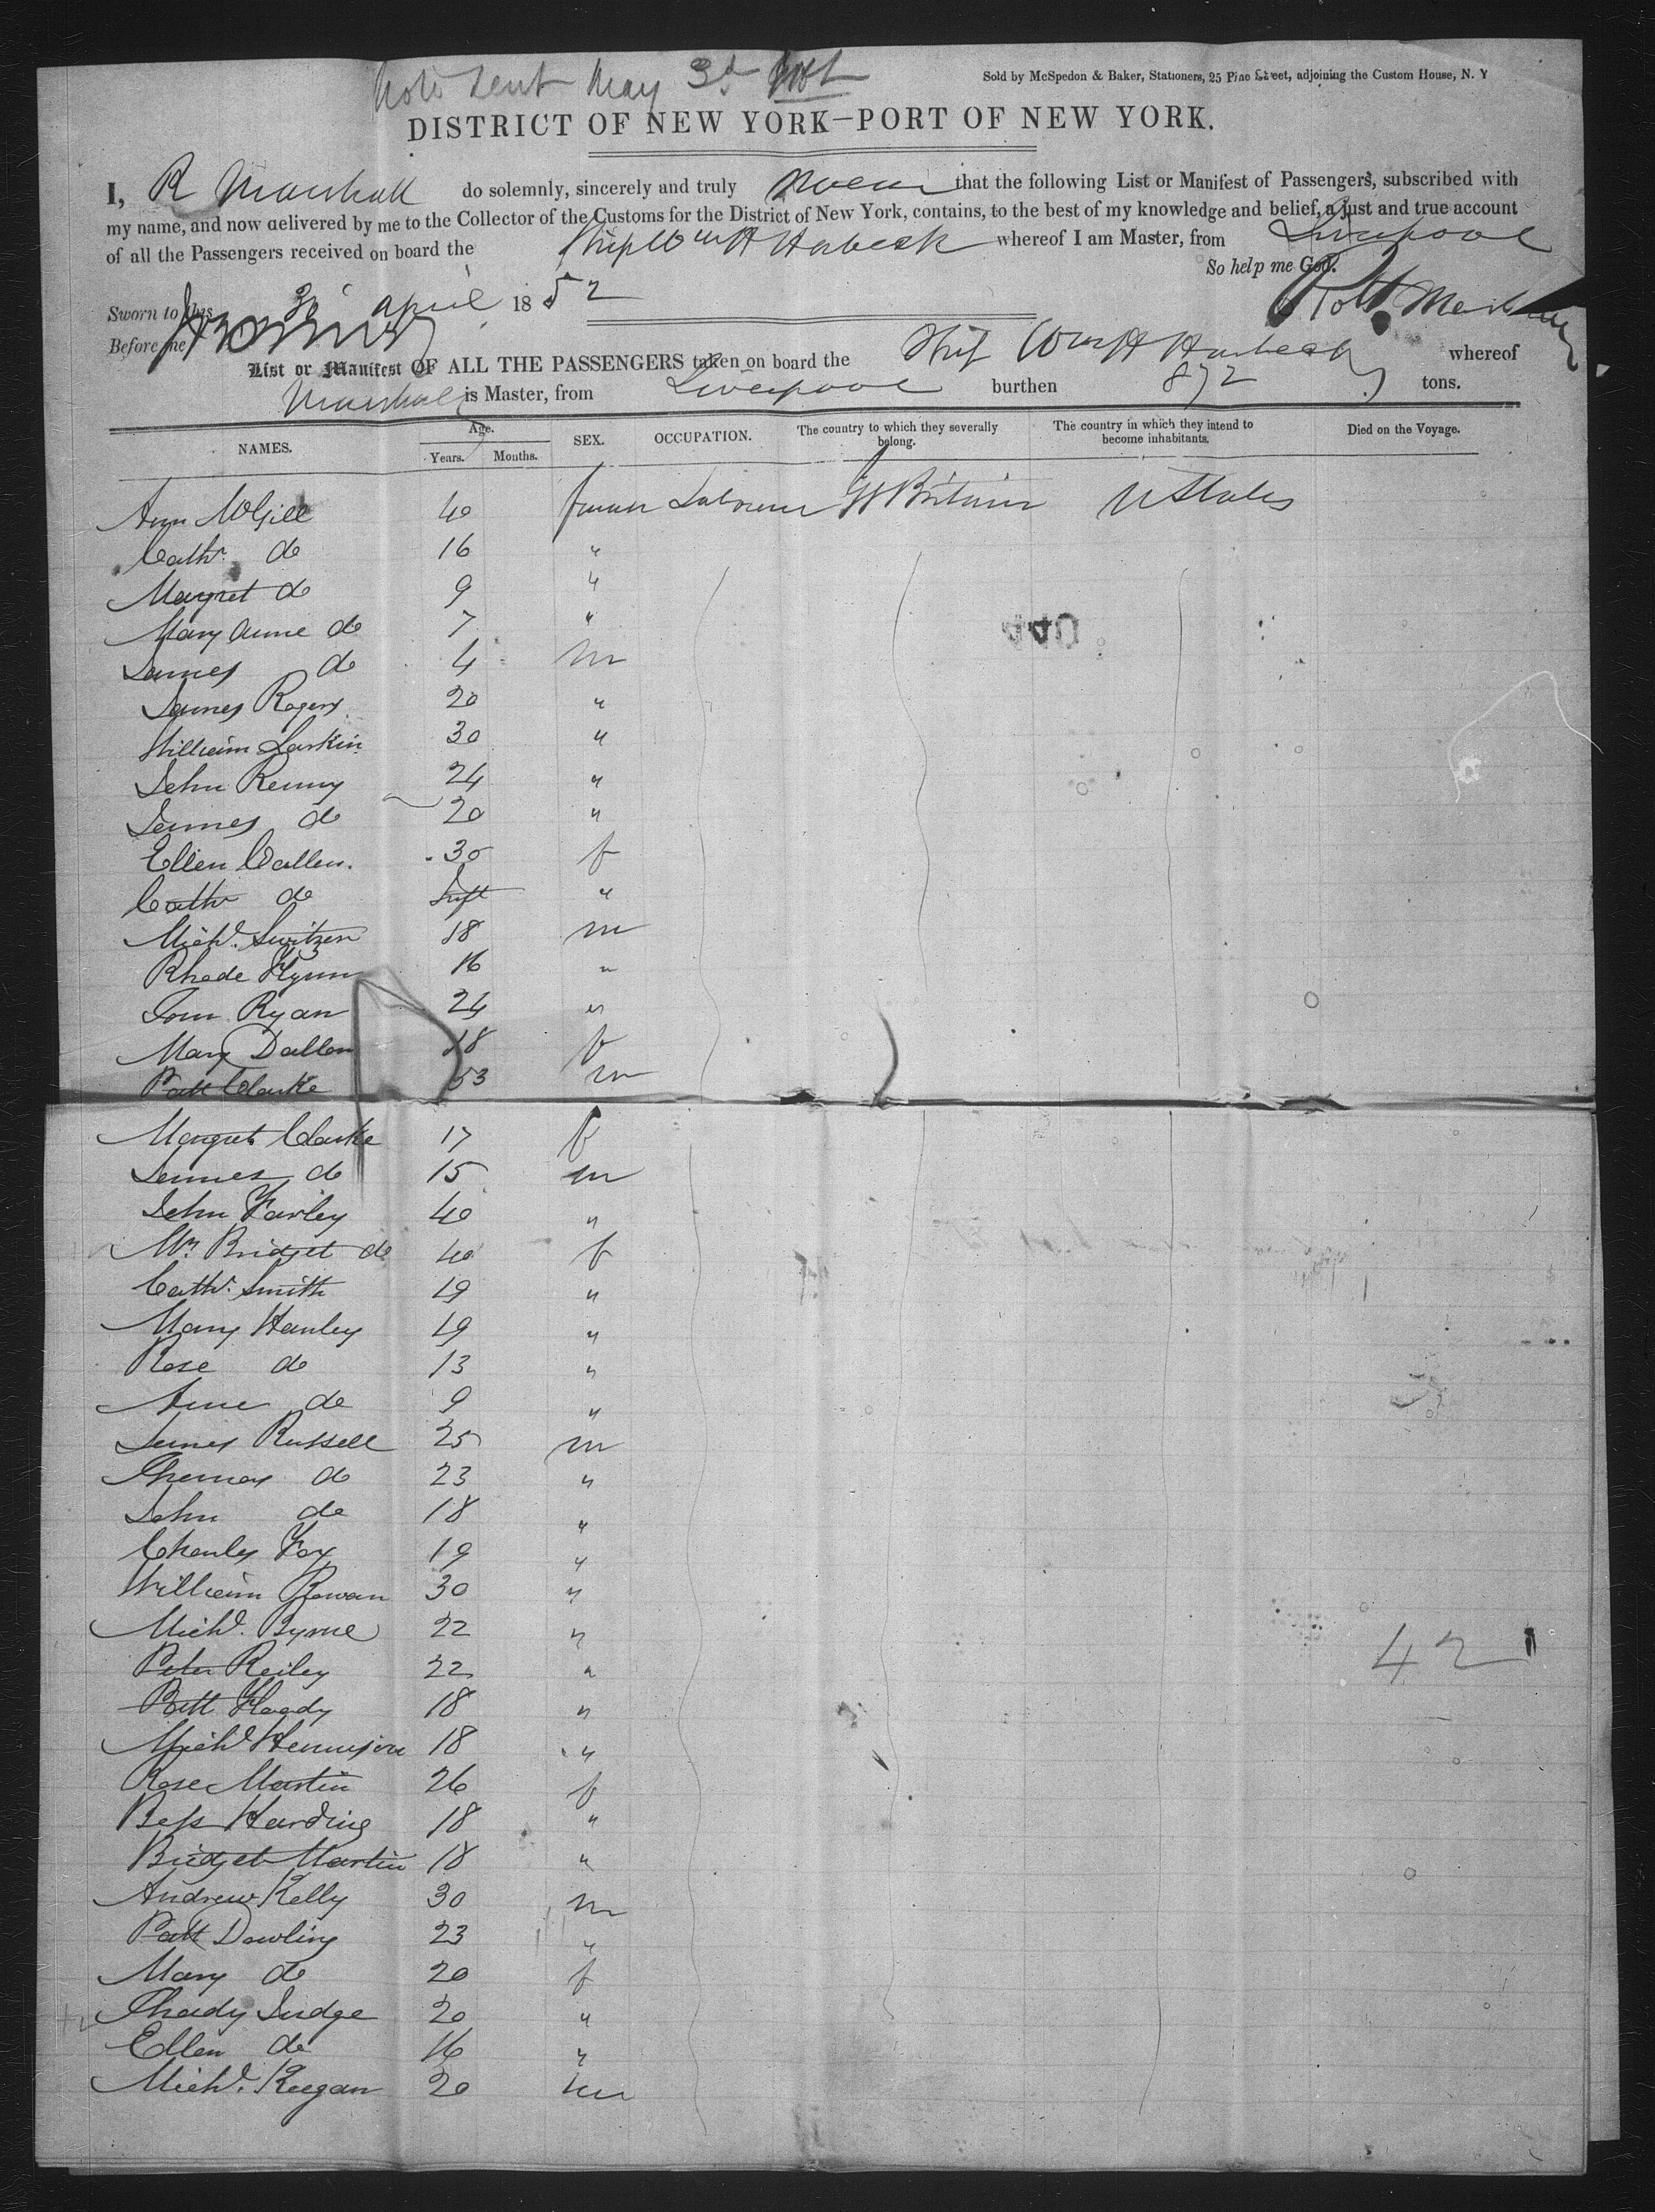 Note sent May 3d
Sold by McSpedon & Baker, Stationers, 25 Pine Street, adjoining the Custom House, N. Y
DISTRICT OF NEW YORK—PORT OF NEW YORK.
I, R Marshall do solemnly, sincerely and truly swear that the following List or Manifest of Passengers, subscribed with
my name, and now delivered by me to the Collector of the Customs for the District of New York, contains, to the best of my knowledge and belief, a just and true account
of all the Passengers received on board the Ship Wm H Harbeck whereof I am Master, from Liverpool
So help me God.
Sworn to this 30 april 1852 Robt Marshall
Before me
List or Manifest OF ALL THE PASSENGERS taken on board the Ship Wm H Harbeck whereof
Marshall is Master, from Liverpool burthen 872 tons.
NAMES. Age. Years. Months. SEX. OCCUPATION. The country to which they severally belong. The country in which they intend to become inhabitants. Died on the Voyage.
Ann McGill 40 female Labourer Gt Britain U States
Cathr. do 16 "
Margret do 9 "
Mary Anne do 7 "
James do 4 m
James Rogers 20 "
William Larkin 30 "
John Renny 24 "
James do 20 "
Ellen Callen. 30 f
Cathr do Inft "
Michl. Switzer 18 m
Rhode Flynn 16 "
Tom Ryan 24 "
Mary Dallon 18 f
Patt Clarke 53 m
Margret Clarke 17 f
James do 15 m
John Farley 40 "
Mrs Bridget do 40 f
Cathr. Smith 19 "
Mary Hanley 19 "
Rose do 13 "
Anne do 9 "
James Russell 25 m
Thomas do 23 "
John do 18 "
Charles Fox 19 "
William Rowan 30 "
Michl. Byrne 22 "
42
Peter Reiley 22 "
Patt Hoady 18 "
Michl 18 "
Rose Martin 26 f
Bess Harding 18 "
Bridget Martin 18 "
Andrew Kelly 30 m
Patt Dowling 23 "
Mary do 20 f
Thady Judge 20 "
Ellen do 16 "
Michl. Keegan 20 m